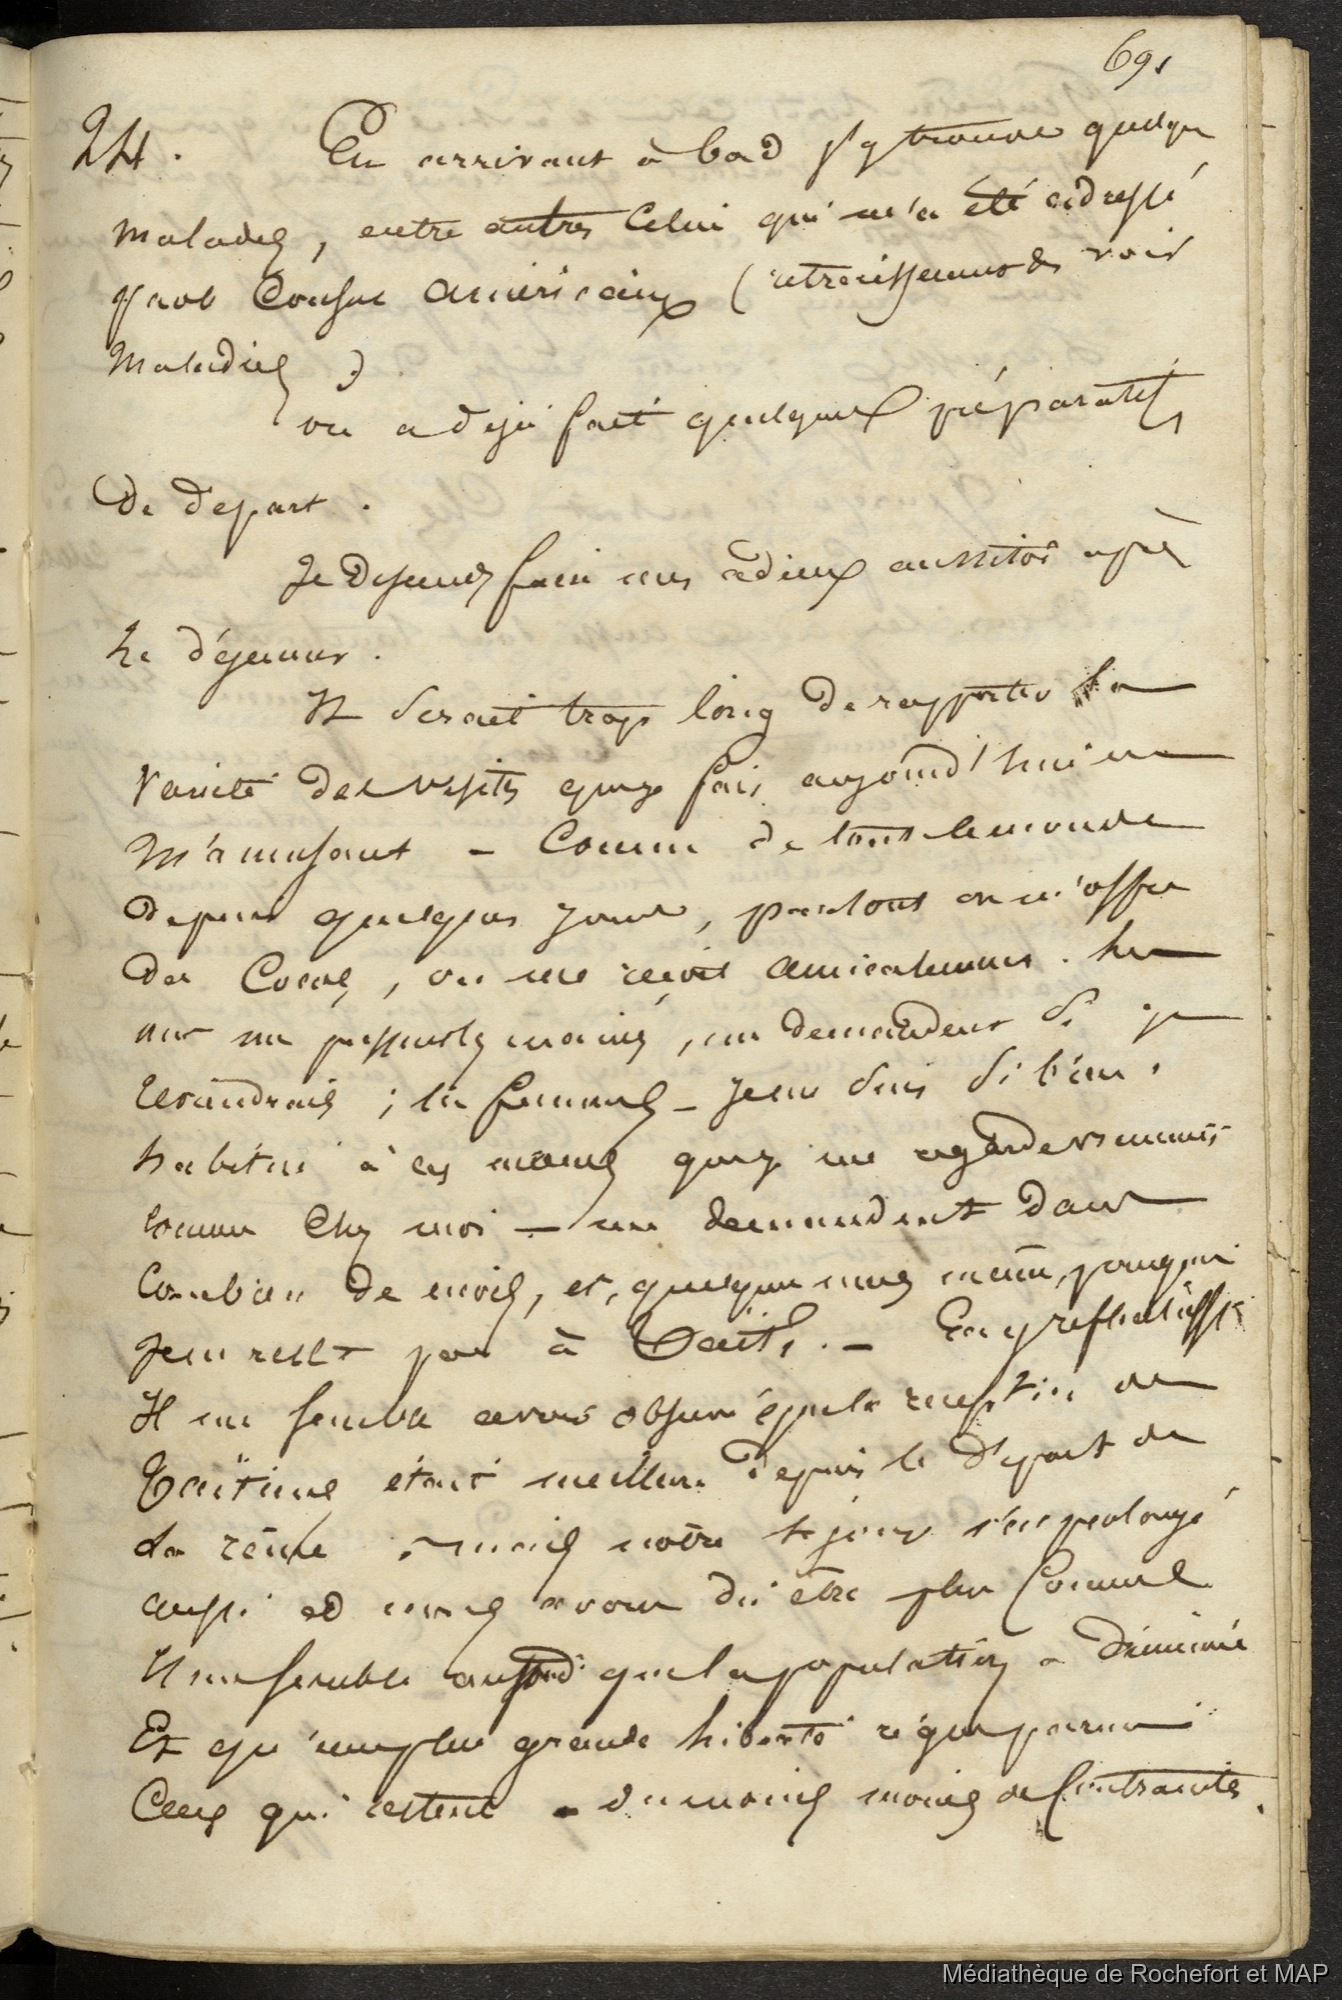 691
24. En arrivant à bord j'y trouve quelques
malades, entre autres celui qui m'a été adressé
par le Consul américain (retrecissement voir
maladies)
on a déjà fait quelques préparatifs
de départ.
Je descends faire mes adieux aussitot après
le déjeuner.
Il serait trop long de rapporter la
variété des visites que je fais aujourd'hui en
m'amusant - Connu de tout le monde
depuis quelques jours, partout on m'offre
des Cocos, on me reçoit amicalement. les
me demandent si je
reviendrais ; les femmes - je me suis si bien
habitué à ces que je me regarde vraiment
comme chez moi - me demandent dans
combien de mois, et, quelques unes même, pourquoi
je ne reste pas à Taïti. - En y reflechissant
Il me semble avoir observé que la reception des
Taïtiens était meilleure depuis le départ de
la reine ; mais notre sejour s'est prolongé
aussi et nous avons dû être plus connus
Il me semble aussi que la population a diminué
Et qu'une plus grande liberté règne parmi
Ceux qui restent - du moins moins de contrainte.
Médiathèque de Rochefort et MAP